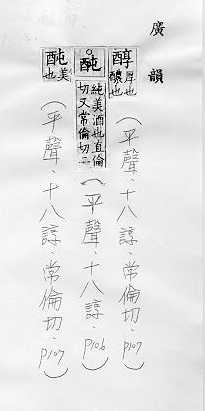 廣韻
醇厚也醲也（平聲．十八諄．常倫切．P107）
。䣩純美酒也直倫切又常倫切二（平聲．十八諄．P106）
䣩美也（平聲．十八諄．常倫切．P107）